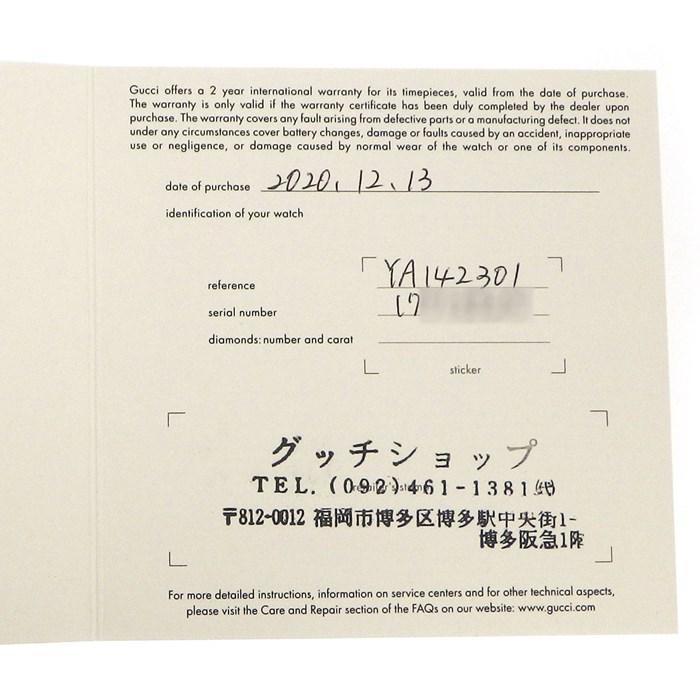 Gucci offers a 2 year international warranty for its timepieces, valid from the date of purchase.
The warranty is only valid if the warranty certificate has been duly completed by the dealer upon
purchase. The warranty covers any fault arising from defective parts or a manufacturing defect. It does not
under any circumstances cover battery changes, damage or faults caused by an accident, inappropriate
use or negligence, or damage caused by normal wear of the watch or one of its components.
date of purchase 2020, 12, 13
identification of your watch
reference YA142301
serial number 17
diamonds: number and carat
sticker
グッチショップ
TEL. (092)461-1381(代)
〒812-0012 福岡市博多区博多駅中央街1-
博多阪急1階
For more detailed instructions, information on service centers and for other technical aspects,
please visit the Care and Repair section of the FAQs on our website: www.gucci.com